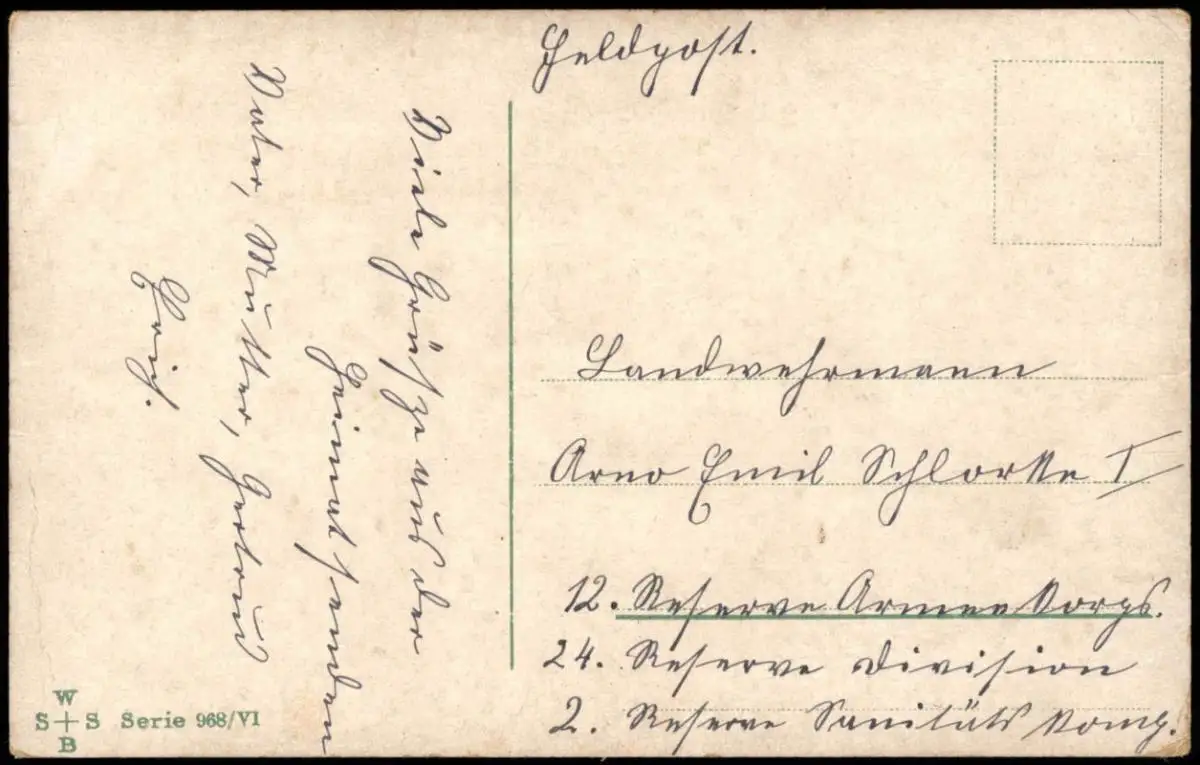 Feldpost.
Viele Grüße aus der
Heimat senden
Vater, Mutter, Gertrud
Erich.
Landwehrmann
Arno Emil I
12. Reserve Armee Korps.
24. Reserve Division
2. Reserve Sanitäts Komp.
W
S+S Serie 968/VI
B